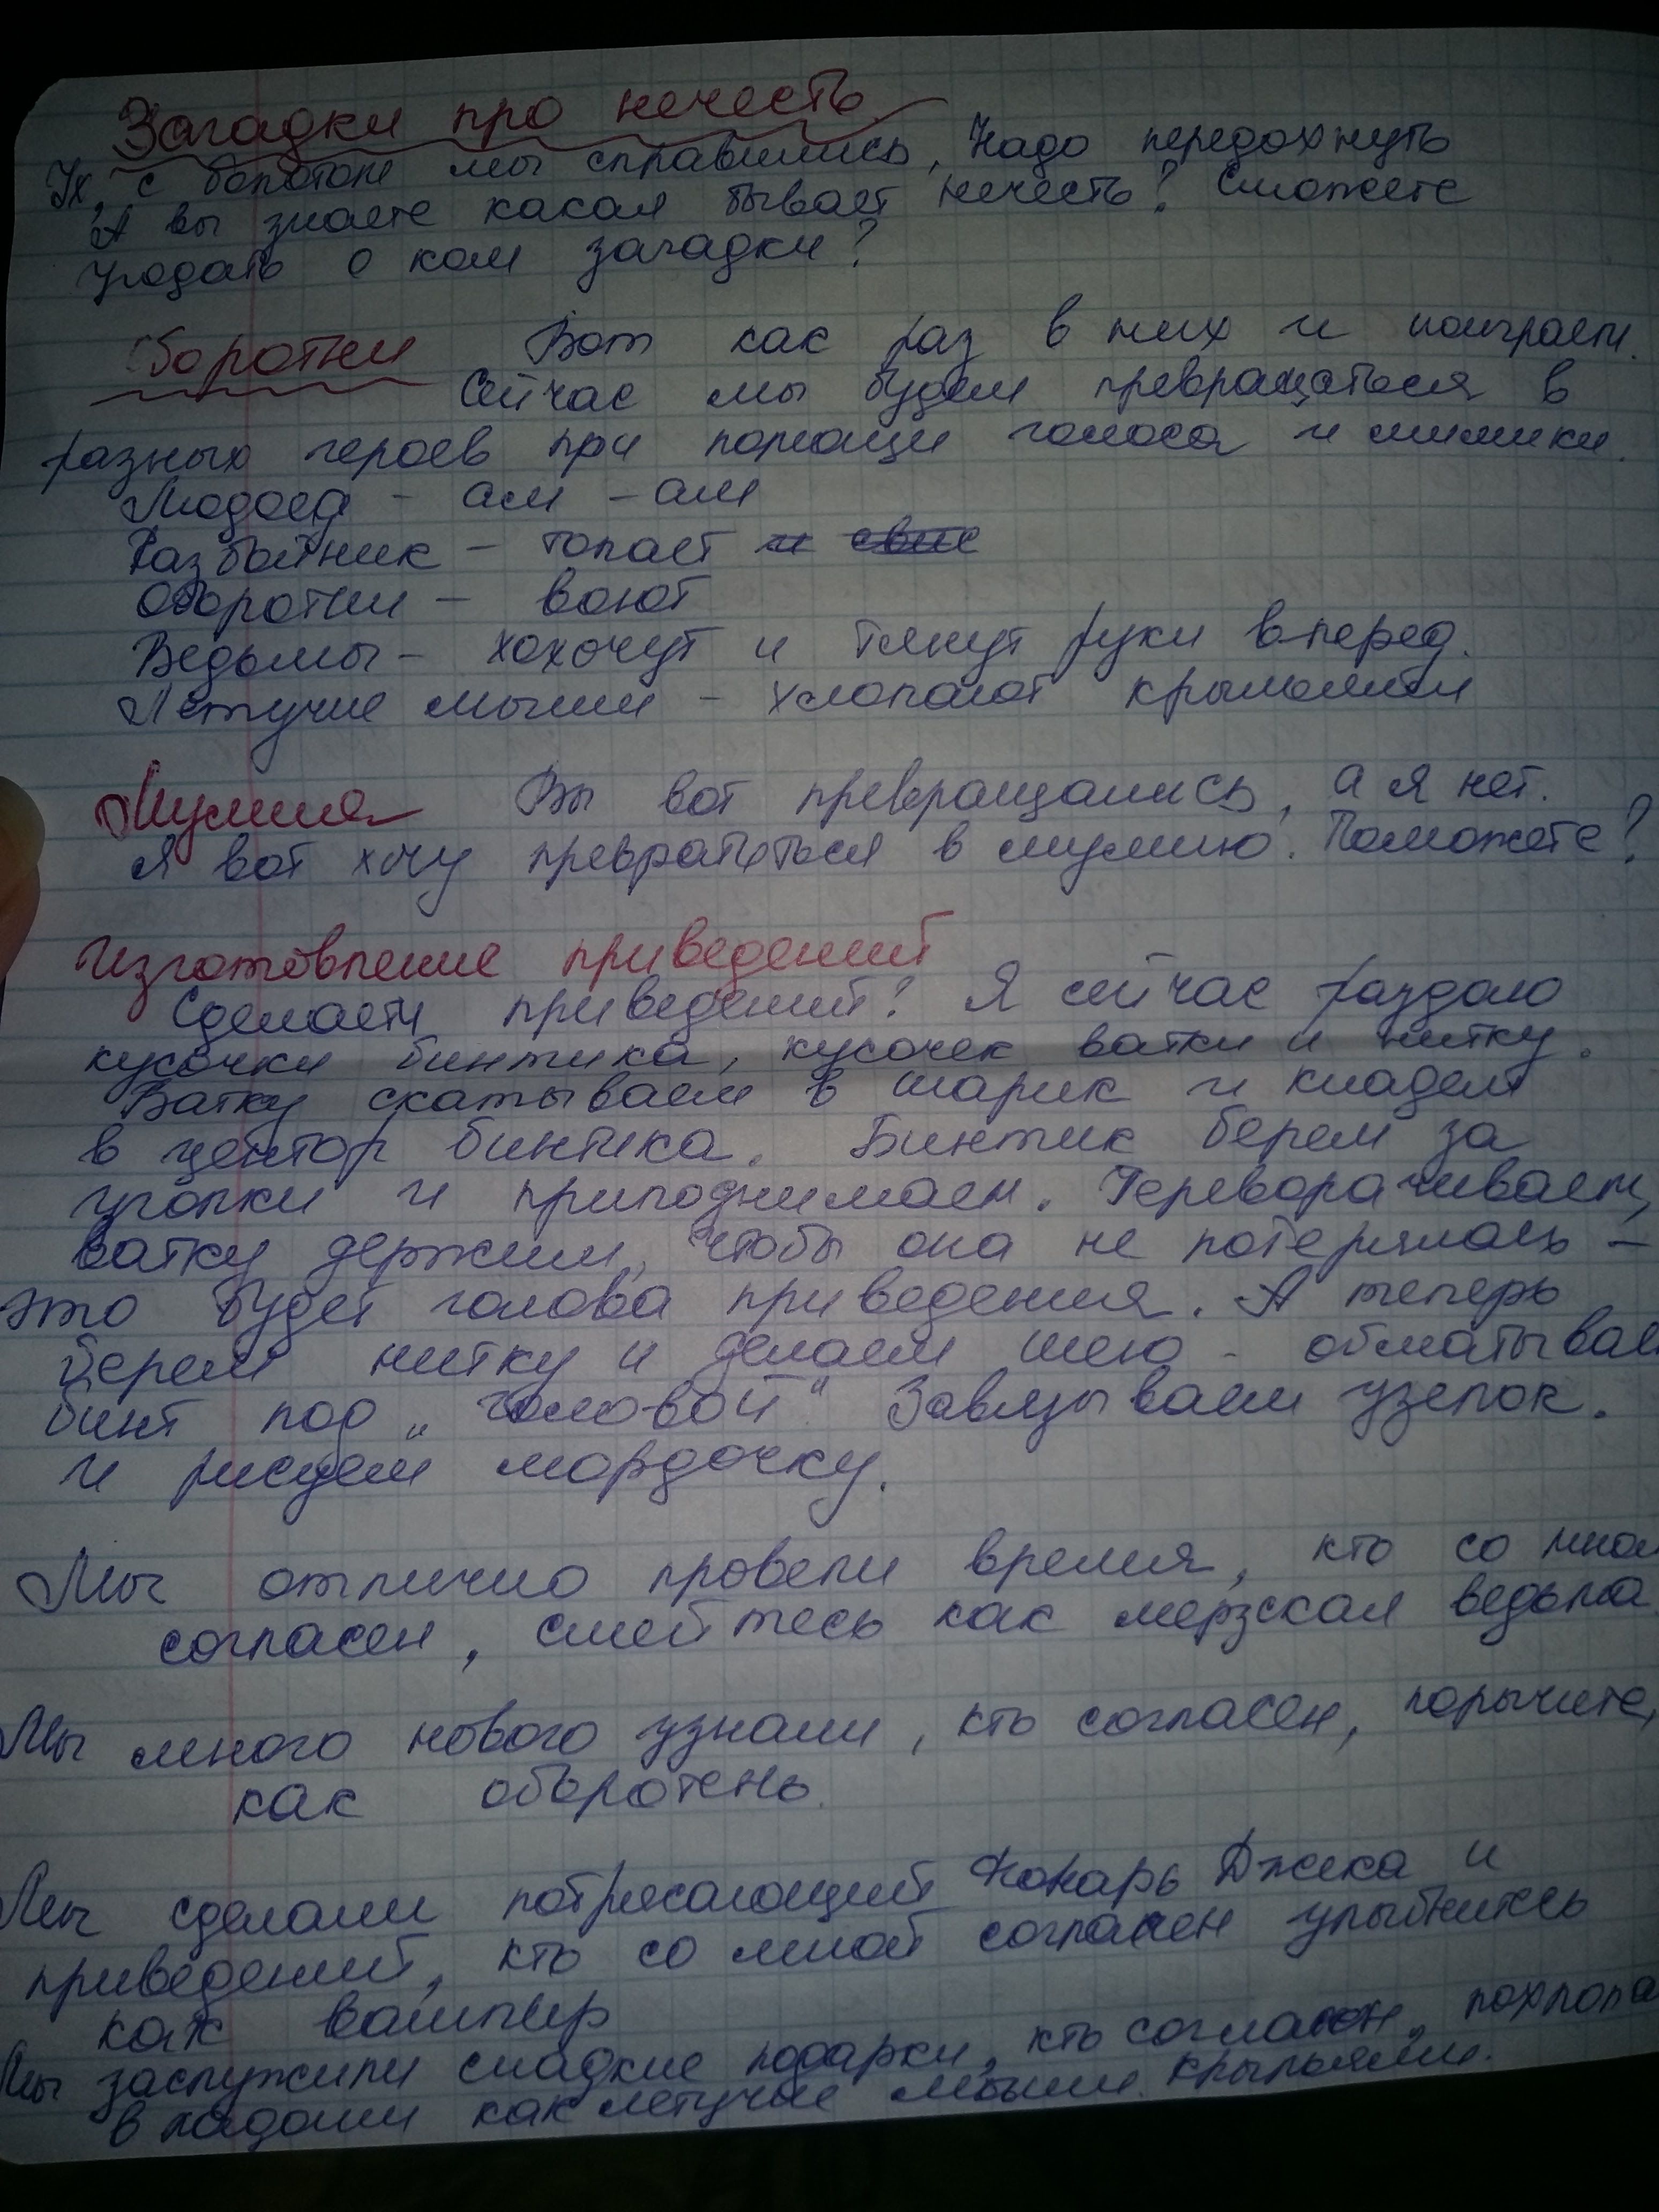 Загадки про нечесть
Ух, с болотом мы справились, Надо передохнуть
А вы знаете какая бывает нечесть? Сможете
угодать о ком загадки?
Оборотни Вот как раз в них и поиграем.
Сейчас мы будем превращаться в
разных героев при помощи голоса и мимики.
Людоед - ам - ам
Разбойник - топает и свис
Оборотни - воют
Ведьмы - хохочут и тянут руки вперед.
Летучие мыши - хлопают крыльями
Мумия Вы вот превращались, а я нет.
Я вот хочу превратиться в мумию. Поможете?
Изготовление приведений
Сделаем приведений? Я сейчас раздаю
кусочки бинтика, кусочек ватки и нитку.
Ватку скатываем в шарик и кладем
в центор бинтика. Бинтик берем за
уголки и приподнимаем. Переворачиваем,
ватку держим, чтобы она не потерялась -
это будет голова приведения. А теперь
берем нитку и делаем шею - обматывае
бинт под „головой" Завязываем узелок.
и рисуем мордочку.
Мы отлично провели время, кто со мной
согласен, смейтесь как мерзская ведьма
Мы много нового узнали, кто согласен, порычите,
как оборотень.
Мы сделали потрясающий Фонарь Джека и
приведений, кто со мной согласен улыбнитесь
как вампир
Мы заслужили сладкие подарки, кто согласен, похлопа
в ладоши как летучие мыши крыльями.